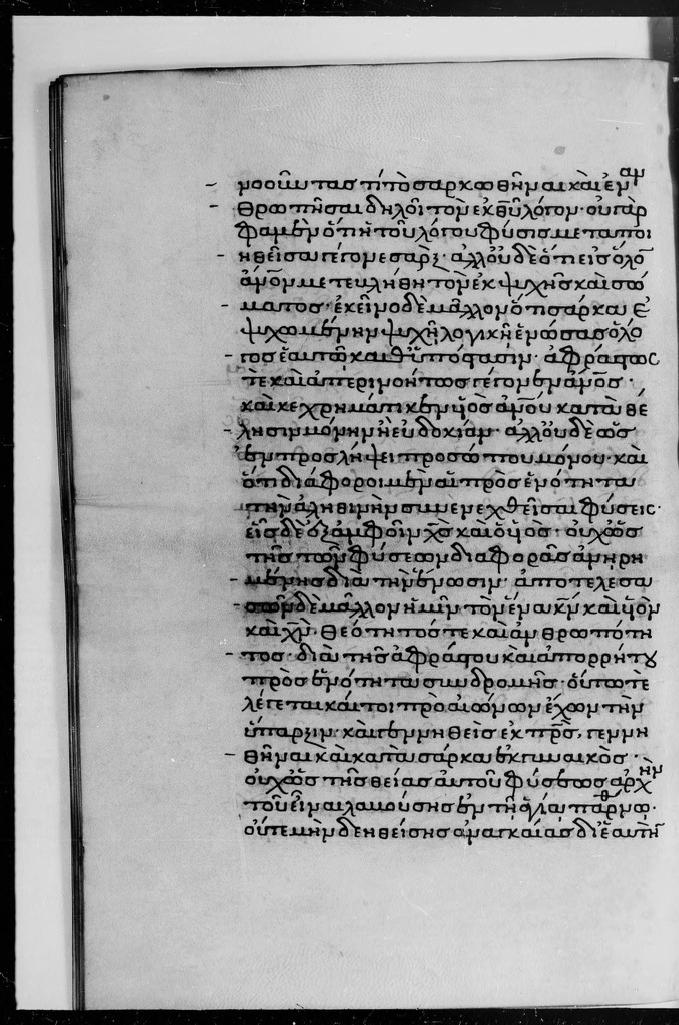 νοοῦντας τί τὸ σαρκωθῆναι καὶ ἐναν
θρωπῆσαι δηλοῖ τὸν ἐκ θῦ λόγον· οὐ γάρ
φαμὲν ὅτι ἡ τοῦ λόγου φύσις μεταποι
ηθεῖσα γέγονε σάρξ· ἀλλ' οὐδὲ ὅτι εἰς ὅλον
ἄνον μετεβλήθη τὸν ἐκ ψυχῆς καὶ σώ
ματος· ἐκεῖνο δὲ μᾶλλον ὅτι σάρκα ἐ
ψυχωμένην ψυχῇ λογικῇ ἑνώσας ὁ λό
γος ἑαυτῷ καθ' ὑπόστασιν· ἀφράστως
τε καὶ ἀπερινοήτως γέγονεν ἄνος·
καὶ κεχρημάτικεν ὑὸς ἀνου κατὰ θέ
λησιν μόνην ἢ εὐδοκίαν· ἀλλ' οὐδὲ ὡς
ἐν προσλήψει προσώπου μόνου· καὶ
ὅτι διάφοροι μὲν αἱ πρὸς ἑνότητα
τὴν ἀληθινὴν συνενεχθεῖσαι φύσεις·
εἷς δὲ ἐξ ἀμφοῖν χς καὶ ὁ ὑὸς· οὐχ ὡς
τῆς τῶν φύσεων διαφορᾶς ἀνῃρη
μένης διὰ τὴν ἕνωσιν· ἀποτελεσα
σῶν δὲ μᾶλλον ἡμῖν τὸν ἕνα κν καὶ ὑὸν
καὶ χν· θεότητός τε καὶ ἀνθρωπότη
τος· διὰ τῆς ἀφράστου καὶ ἀπορρήτου
πρὸς ἑνότητα συνδρομῆς· οὕτω τε
λέγεται καίτοι πρὸ αἰώνων ἔχων τὴν
ὕπαρξιν καὶ γεννηθεὶς ἐκ πρς, γεννη
θῆναι καὶ κατὰ σάρκα ἐκ γυναικὸς·
οὐχ ὡς τῆς θείας αὐτοῦ φύσεως ἀρχὴν
τοῦ εἶναι λαβούσης ἐν τῇ ἁγίᾳ παρθνω·
οὔτε μὴν δεηθείσης ἀναγκαίας δι' ἑαυτὴν